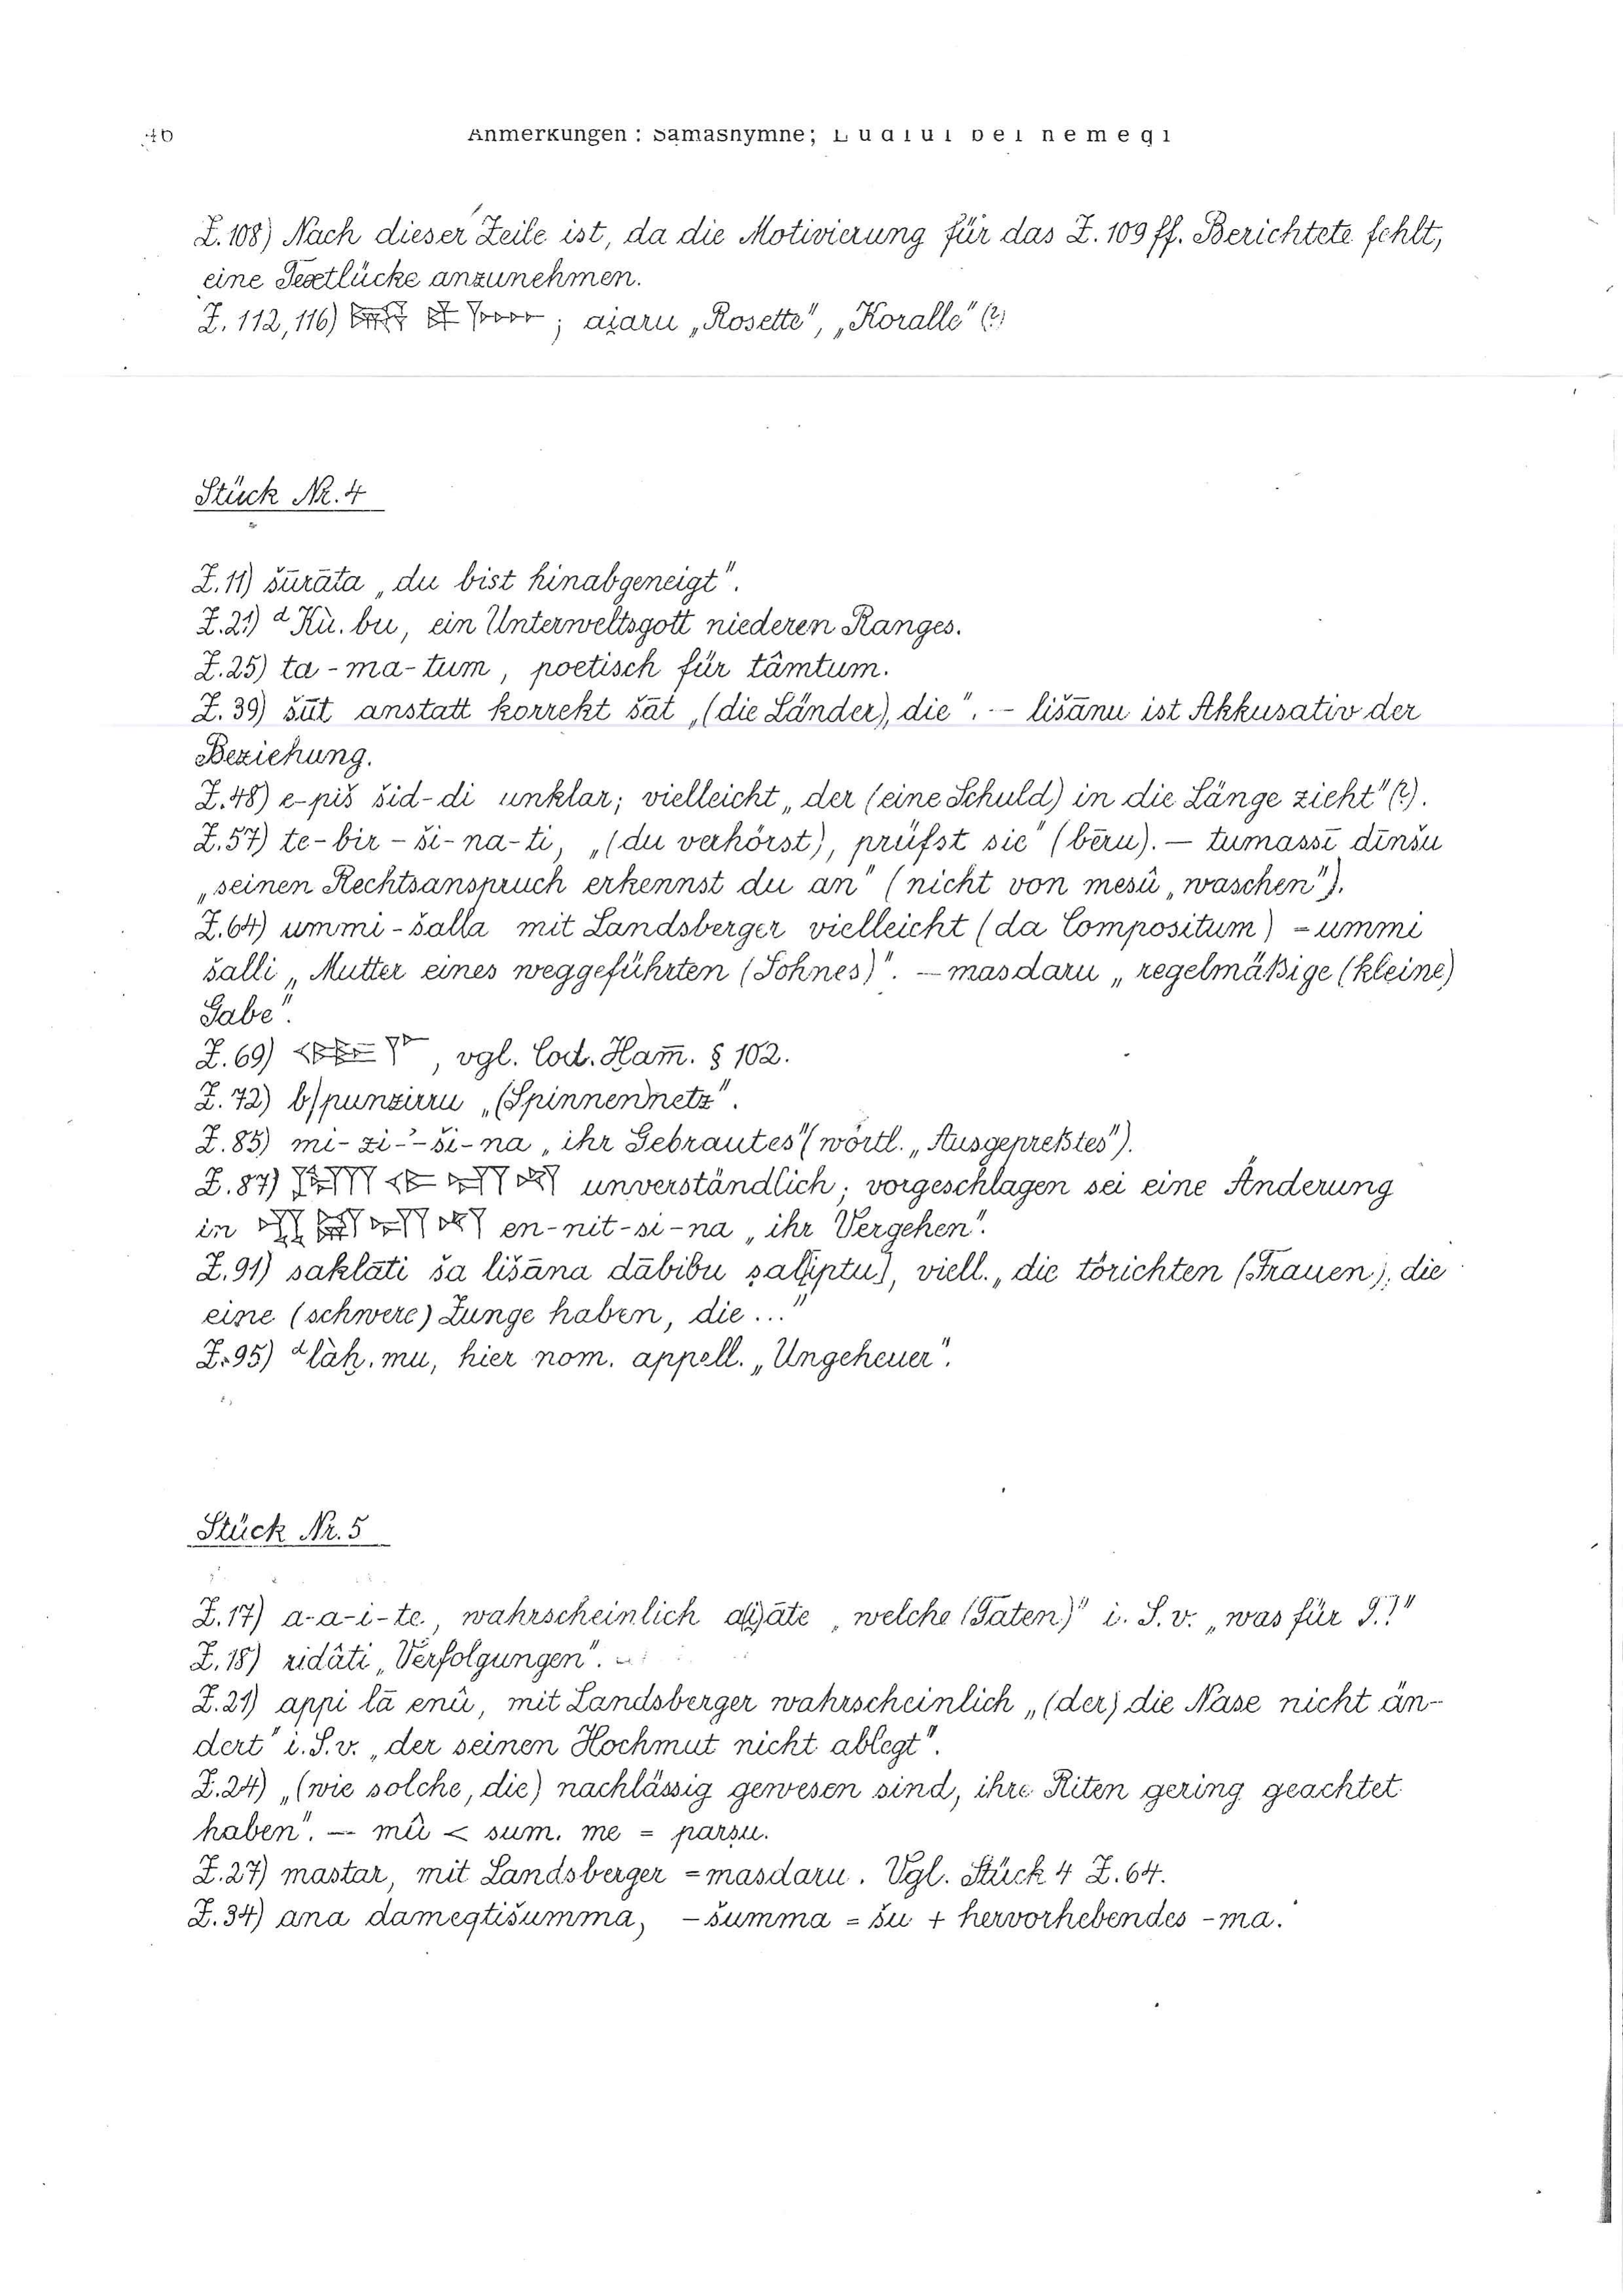 Anmerkungen: Šamašhymne; Ludlul bel nemeqi
Z.108) Nach dieser Zeile ist, da die Motivierung für das Z.109 ff. Berichtete fehlt,
eine Textlücke anzunehmen.
Z.112,116) ; ajaru „Rosette", „Koralle" (?)
Stück Nr. 4
Z.11) šūrāta „du bist hinabgeneigt".
Z.21) ᵈKù.bu, ein Unterweltsgott niederen Ranges.
Z.25) ta-ma-tum, poetisch für tâmtum.
Z.39) šūt anstatt korrekt šāt „(die Länder), die". – lišānu ist Akkusativ der
Beziehung.
Z.48) e-piš šid-di unklar; vielleicht „der (eine Schuld) in die Länge zieht" (?).
Z.57) te-bir-ši-na-ti, „(du verhörst), prüfst sie" (bēru). – tumassī dīnšu
„seinen Rechtsanspruch erkennst du an" (nicht von mesû „waschen").
Z.64) ummi-šalla mit Landsberger vielleicht (da Compositum) = ummi
šalli „Mutter eines weggeführten (Sohnes)". – masdaru „regelmäßige (kleine)
Gabe".
Z.69) , vgl. Cod. Ham̄. § 102.
Z.72) b/punzirru „(Spinnen)netz".
Z.85) mi-zi-ʾ-ši-na „ihr Gebrautes" (wörtl. „Ausgepreßtes").
Z.87) unverständlich; vorgeschlagen sei eine Änderung
in en-nit-si-na „ihr Vergehen".
Z.91) saklāti ša lišāna dābibu, viell. „die törichten (Frauen), die
eine (schwere) Zunge haben, die ..."
Z.95) ᵈlàḫ.mu, hier nom. appell. „Ungeheuer".
Stück Nr. 5
Z.17) a-a-i-te, wahrscheinlich „welche (Taten)" i.S.v. „was für T.!"
Z.18) ridâti „Verfolgungen".
Z.21) appi lā enû, mit Landsberger wahrscheinlich „(der) die Nase nicht än-
dert" i.S.v. „der seinen Hochmut nicht ablegt".
Z.24) „(wie solche, die) nachlässig gewesen sind, ihre Riten gering geachtet
haben". – mû < sum. me = parṣu.
Z.27) mastar, mit Landsberger = masdaru. Vgl. Stück 4 Z.64.
Z.34) ana dameqtišumma, -šumma = šu + hervorhebendes -ma.